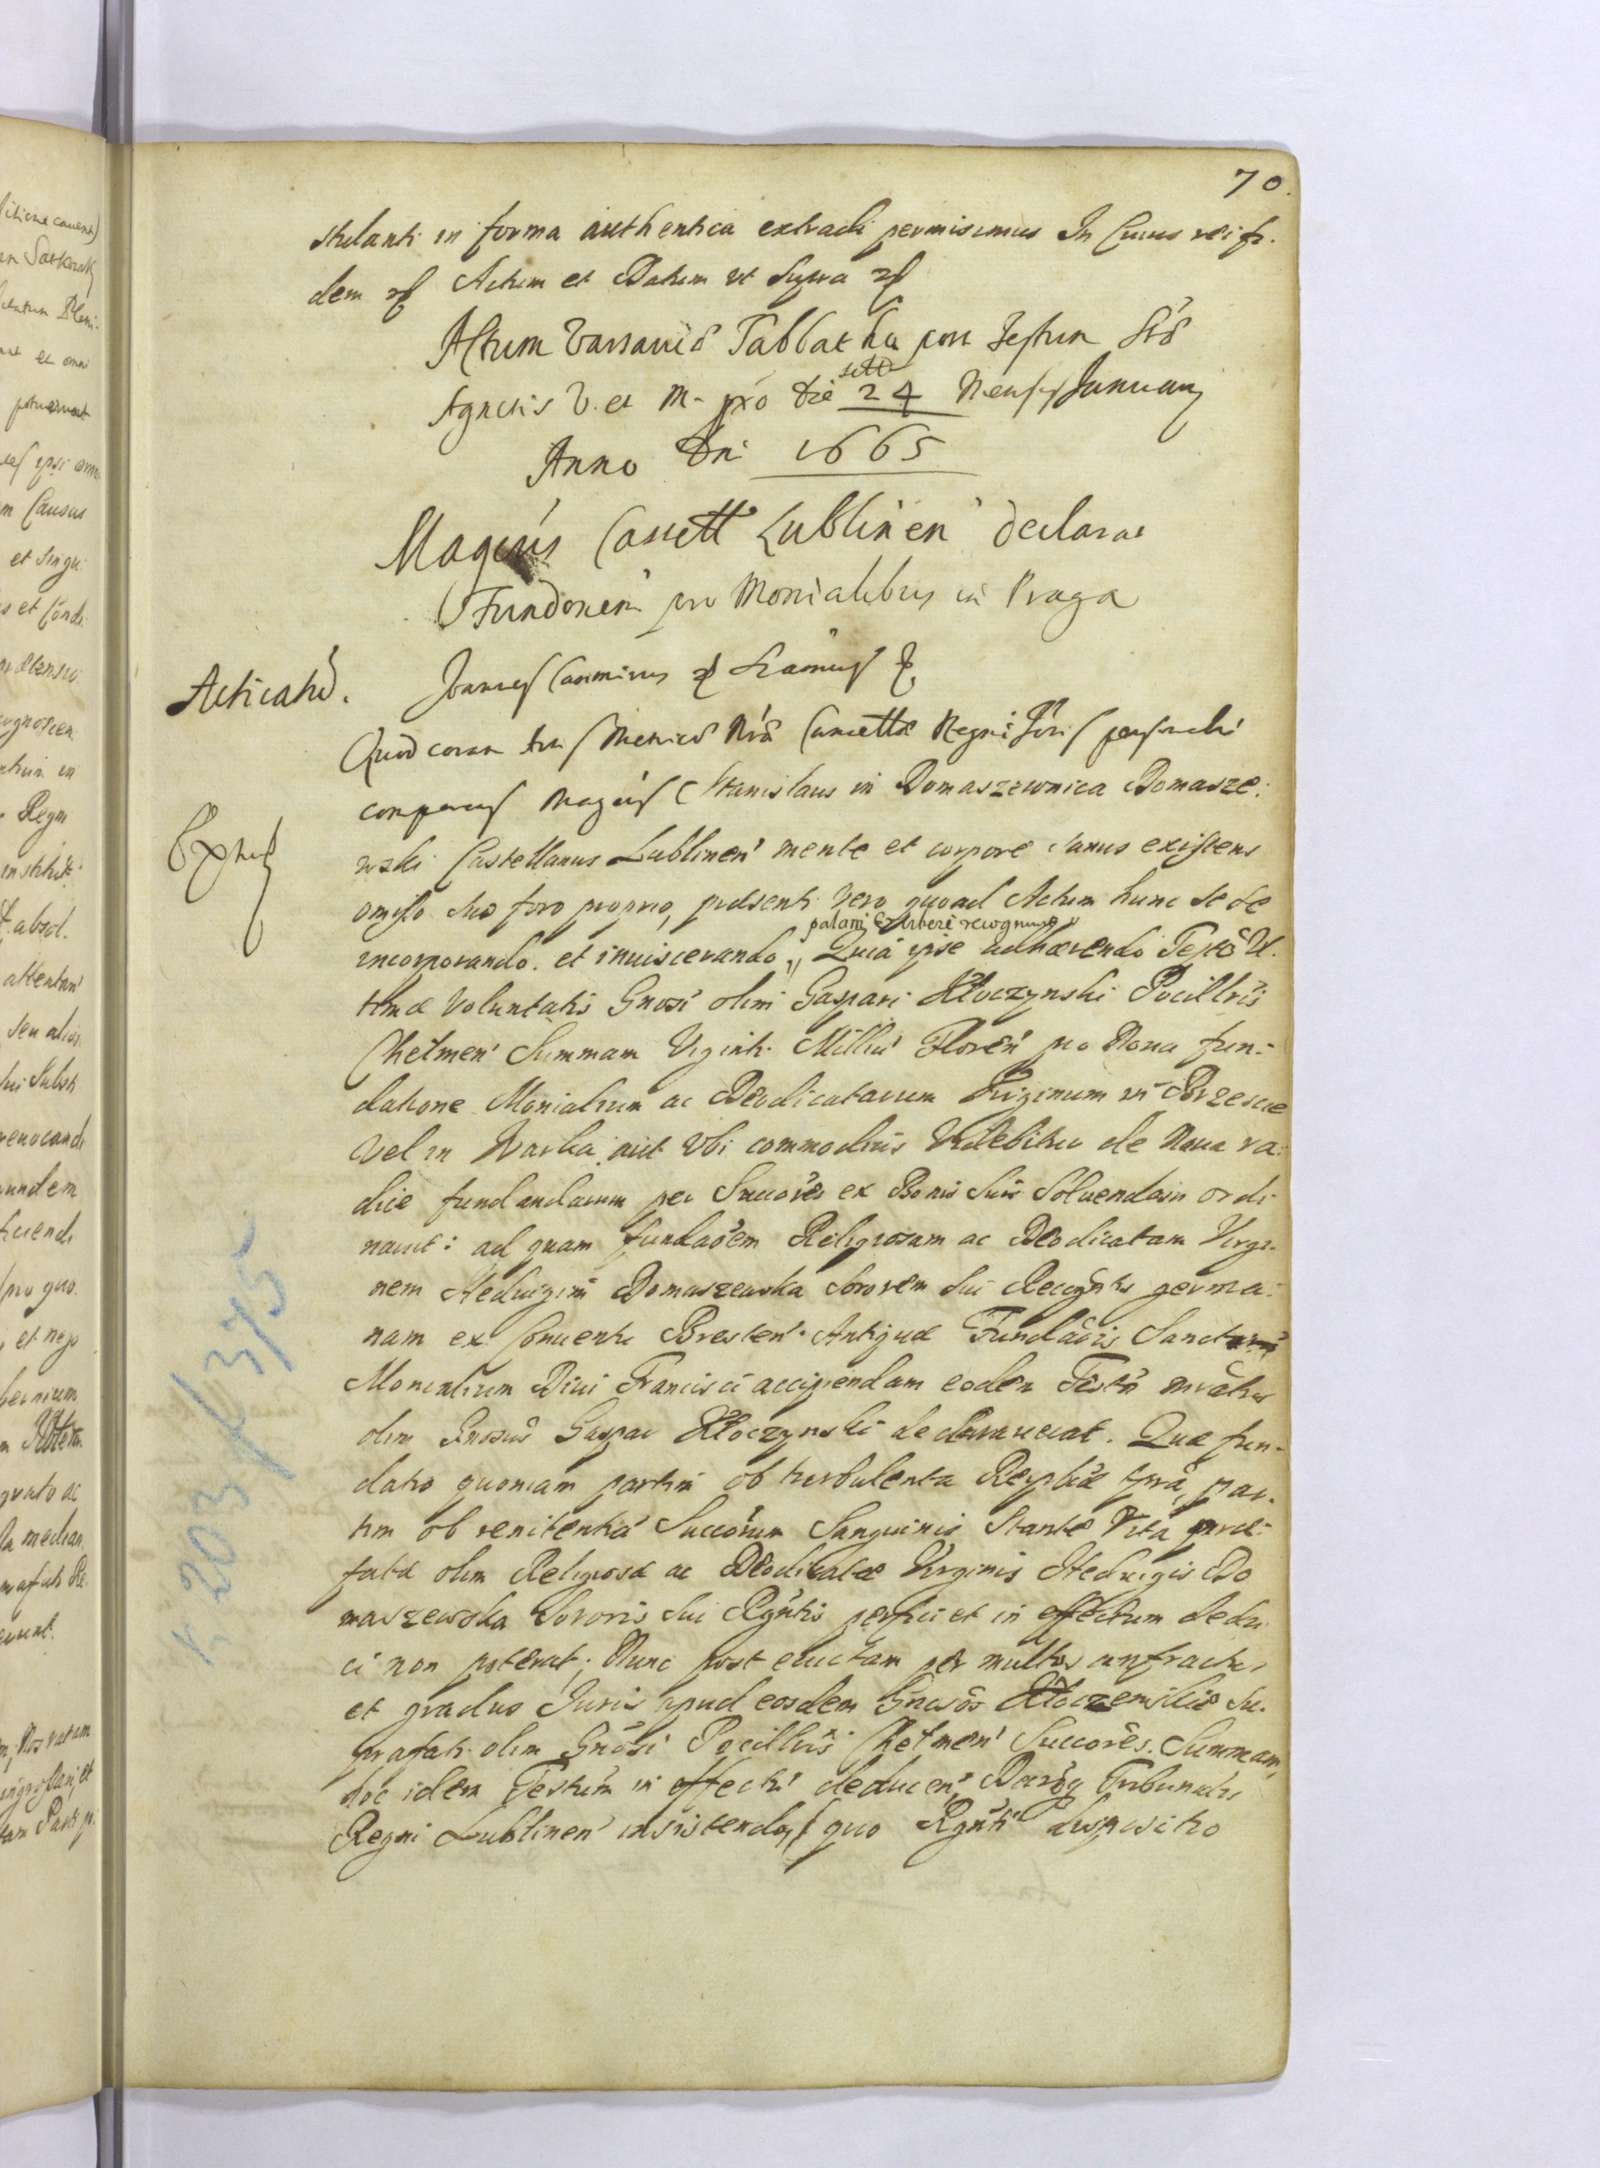 70.
stulanti in forma authentica extradi permisimus In Cuius rei fi-
dem Actum et Datum ut Supra
Actum Varsaviæ Sabbatho post Festum Stæ
Agnetis V. et M. pro die 24 Mensis Januarij
Anno Dni 1665
Magcus Castell Lublinen declarat
Fundonem pro Monialibus in Praga
Joannes Casimirus
Quod coram Actis Metrices Cancellæ Regni personaliter
comparens Magcus Stanislaus in Domaszewnica Domasze:
wski Castellanus Lublinen mente et corpore sanus existens
omisso suo foro proprio, præsenti vero quoad Actum hunc se se
palam & libere recognovit
incorporando et inviscerando, Quia ipse adhærendo Testo Ul-
timæ Voluntatis Gnosi olim Gaspari Kłoczynski Pocillris
Chełmen Summam Viginti Milliu Floren pro Nova fun-
datione Monialium ac Deodicatarum Virginum in Brzescie
vel in Warka aut Ubi commodius Videbitur de Nova ra-
dice fundandarum per Succores ex Bonis Suis Solvendam ordi
navit: ad quam fundaoem Religiosam ac Deodicatam Virgi-
nem Hedvigim Domaszewska Sororem Sui Recogntis germa-
nam ex Conventu Bresten Antiquæ Fundaois Sanctarum
Monialium Divi Francisci accipiendam eodem Testo
olim Gnosus Gaspar Kłoczynski declaraverat. Quæ fun-
datio quoniam partim ob turbulenta Reiplcæ tpra, par-
tim ob renitentia Succorum Sanguinis Stante Vita præ-
fatæ olim Religiosæ ac Deodicatæ Virginis Hedvigis Do
maszewska Sororis Sui Rgntis perfici et in effectum dedu
ci non poterat; Nunc post evictam per multos anfractus
et gradus Juris apud eosdem Gnosos Kłoczenskie Su-
prafati olim Gnosi Pocillris Chełmen Succores Summam,
hoc idem Testum in effectu deducen, Decreto Tribunalis
Regni Lublinen insistendo, quo Rgnti dispositio
Acticatio.
K 203 f 375